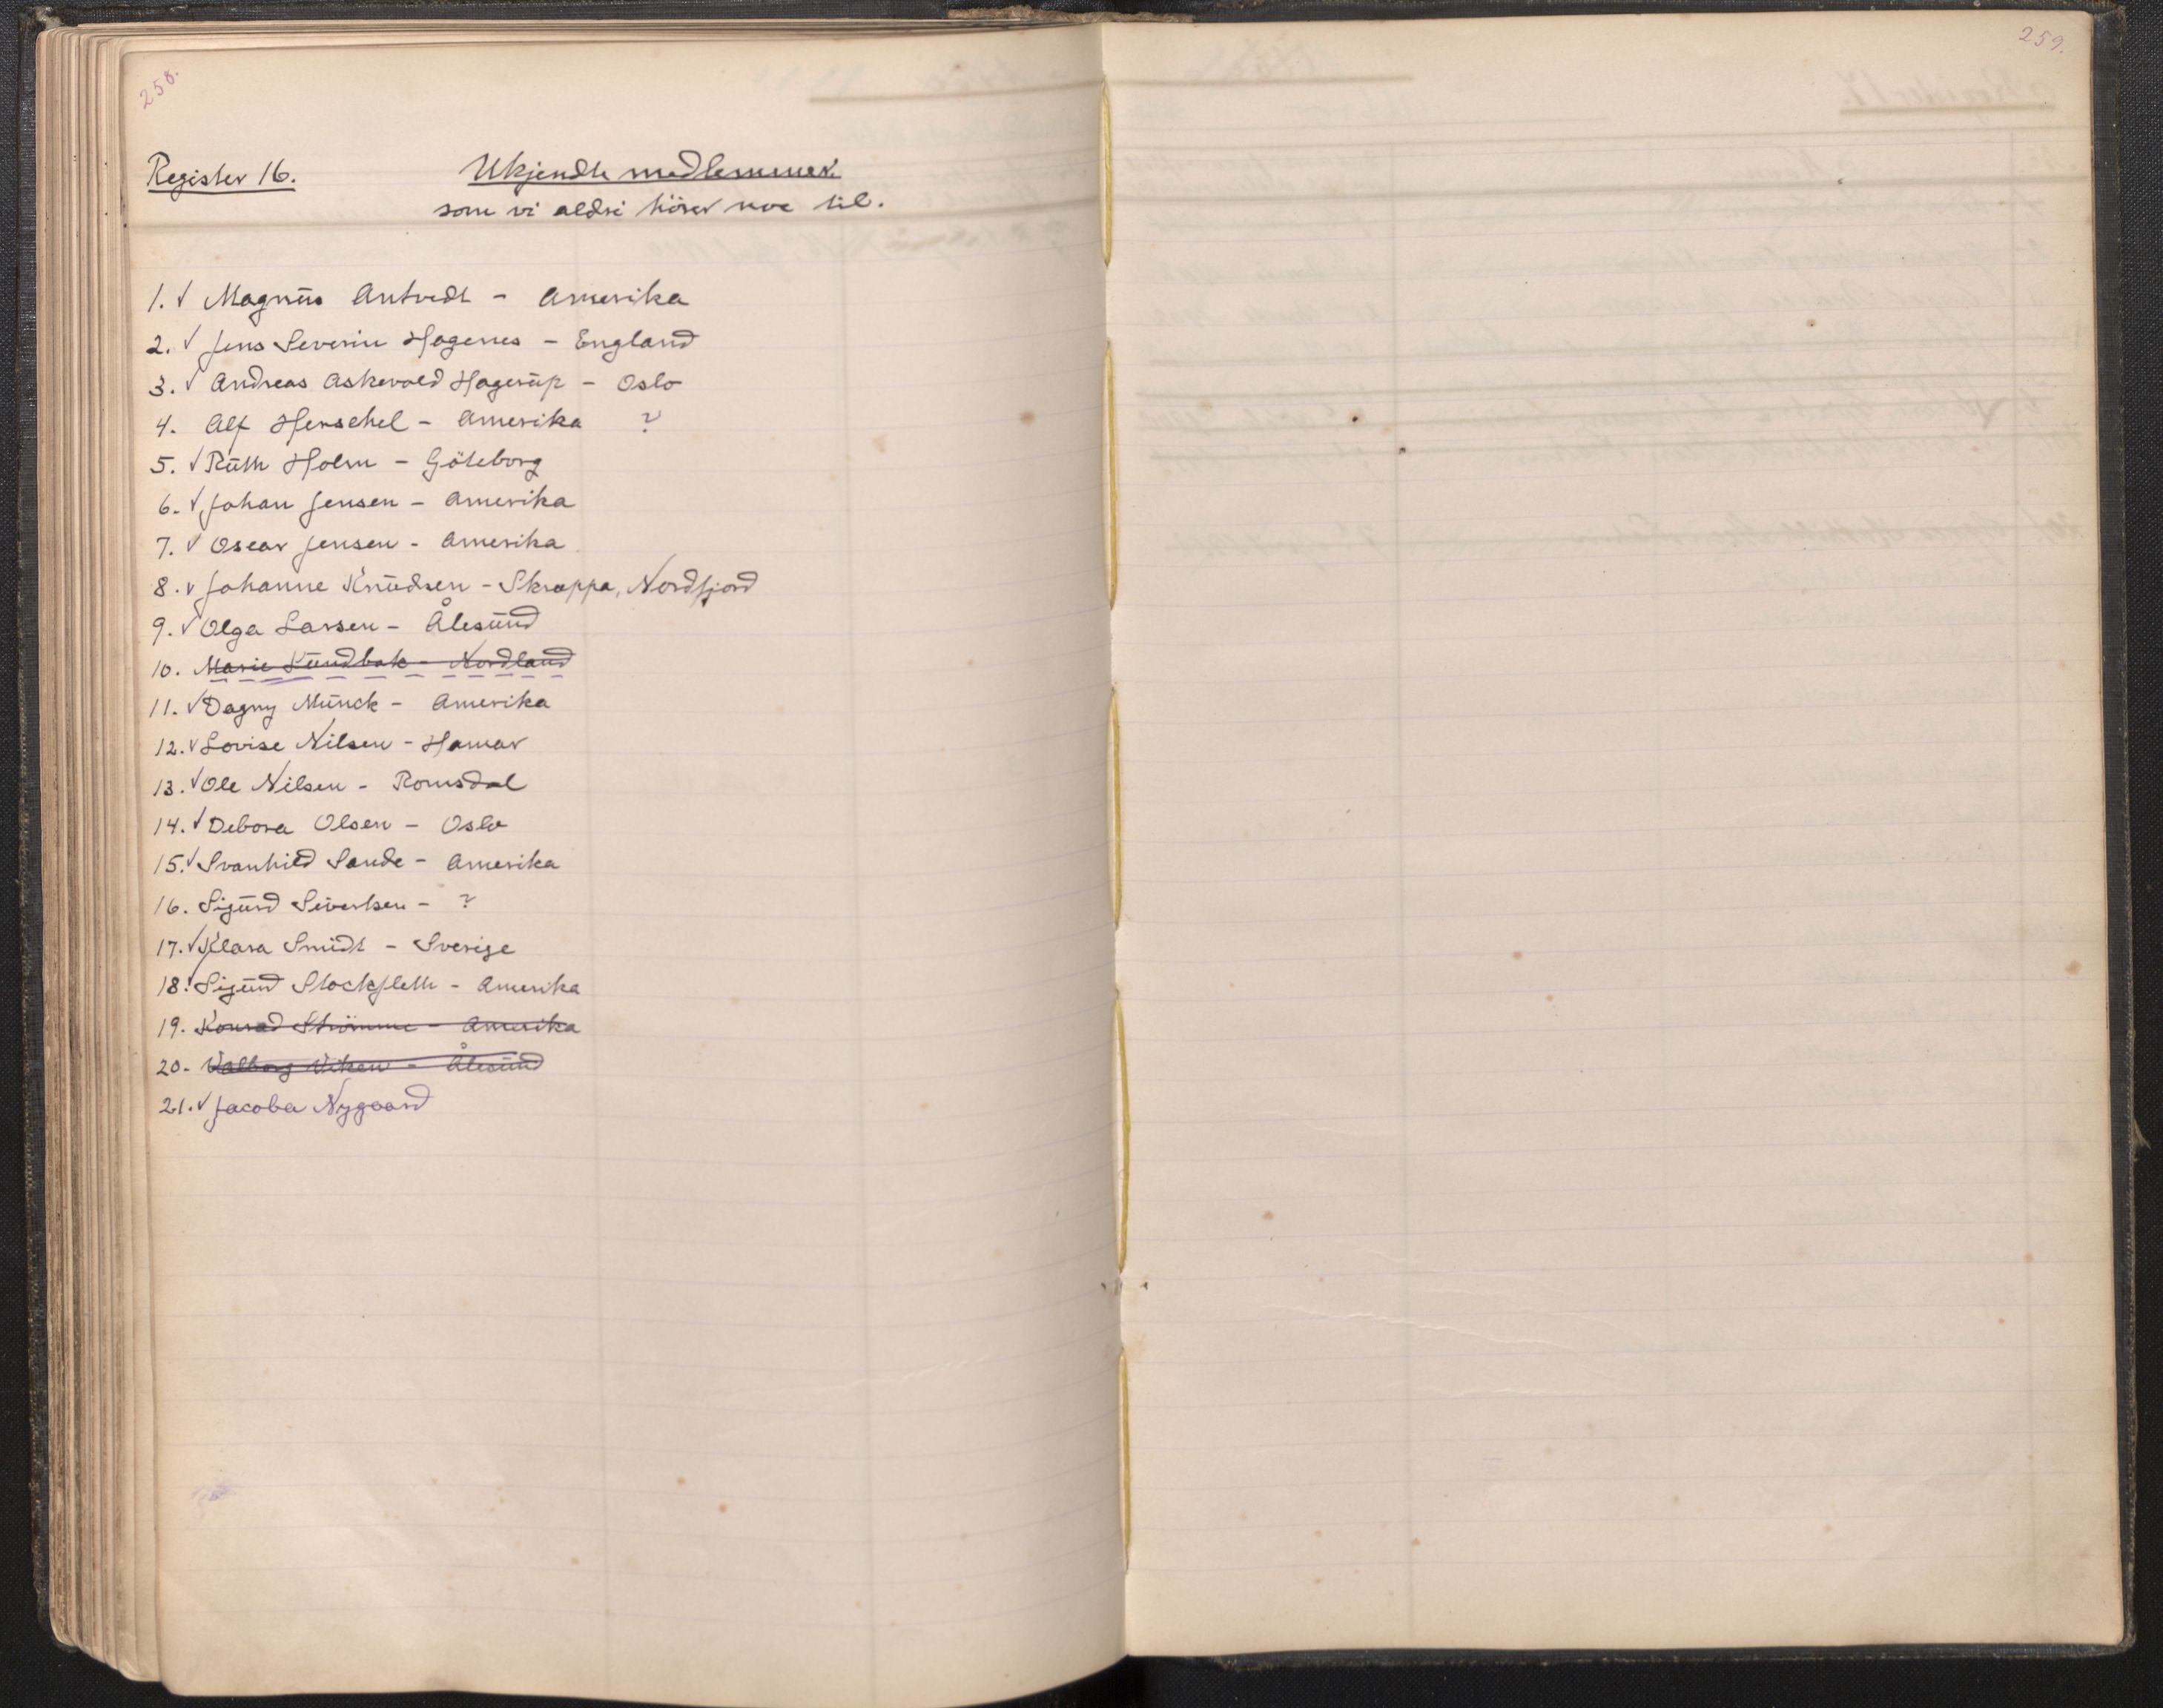 258.
Register 16. Ukjendte medlemmer.
som vi aldri hörer noe til.
1. √ Magnus Antvedt - Amerika
2. √ Jens Severin Hagenes - England
3. √ Andreas Askevold Hagerup - Oslo
4. Alf Herschel - Amerika ?
5. √ Ruth Holm - Göteborg
6. √ Johan Jensen - Amerika
7. √ Oscar Jensen - Amerika
8. √ Johanne Knudsen - Skroppa, Nordfjord
9. √ Olga Larsen - Ålesund
10. Marie Lundbak - Nordland
11. √ Dagny Munck - Amerika
12. √ Lovise Nilsen - Hamar
13. √ Ole Nilsen - Romsdal
14. √ Debora Olsen - Oslo
15. √ Svanhild Sande - Amerika
16. Sigurd Sivertsen - ?
17. √ Klara Smidt - Sverige
18. √ Sigurd Stockfleth - Amerika
19. Konrad Strömme - Amerika
20. Valborg Viken - Ålesund
21. √ Jacoba Nygaard
259.